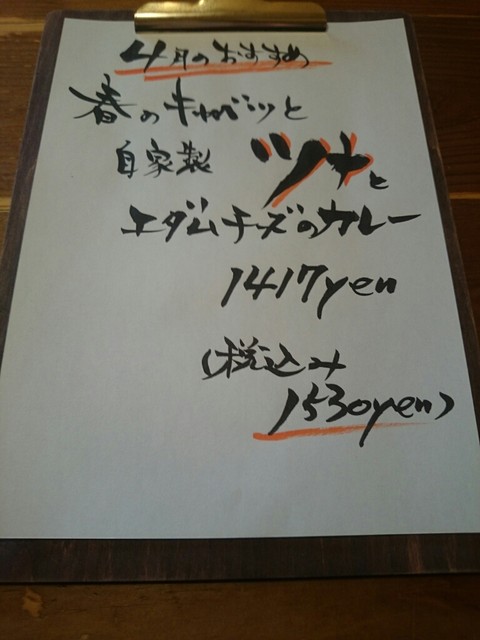 4月のおすすめ
春のキャベツと
自家製 ツナと
エダムチーズのカレー
1417yen
(税込み
1530yen)